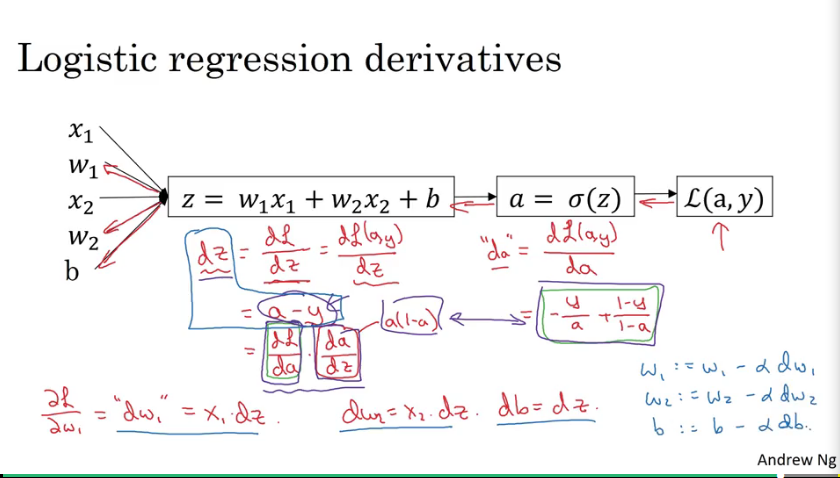 Logistic regression derivatives
x₁
w₁
x₂
w₂
b
z = w₁x₁ + w₂x₂ + b
a = σ(z)
ℒ(a, y)
dz = dℒ/dz = dℒ(a,y)/dz
= a - y
= dℒ/da · da/dz
a(1-a)
"da" = dℒ(a,y)/da
= -y/a + 1-y/1-a
∂ℒ/∂w₁ = "dw₁" = x₁·dz. dw₂ = x₂·dz. db = dz.
w₁ := w₁ - α dw₁
w₂ := w₂ - α dw₂
b := b - α db.
Andrew Ng